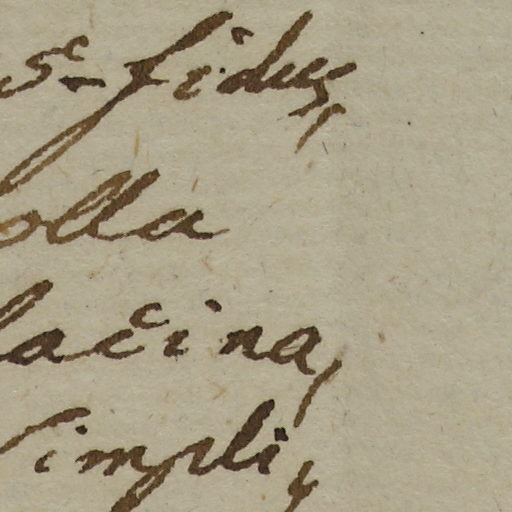 fidus,
olla
lacina,
simpli,